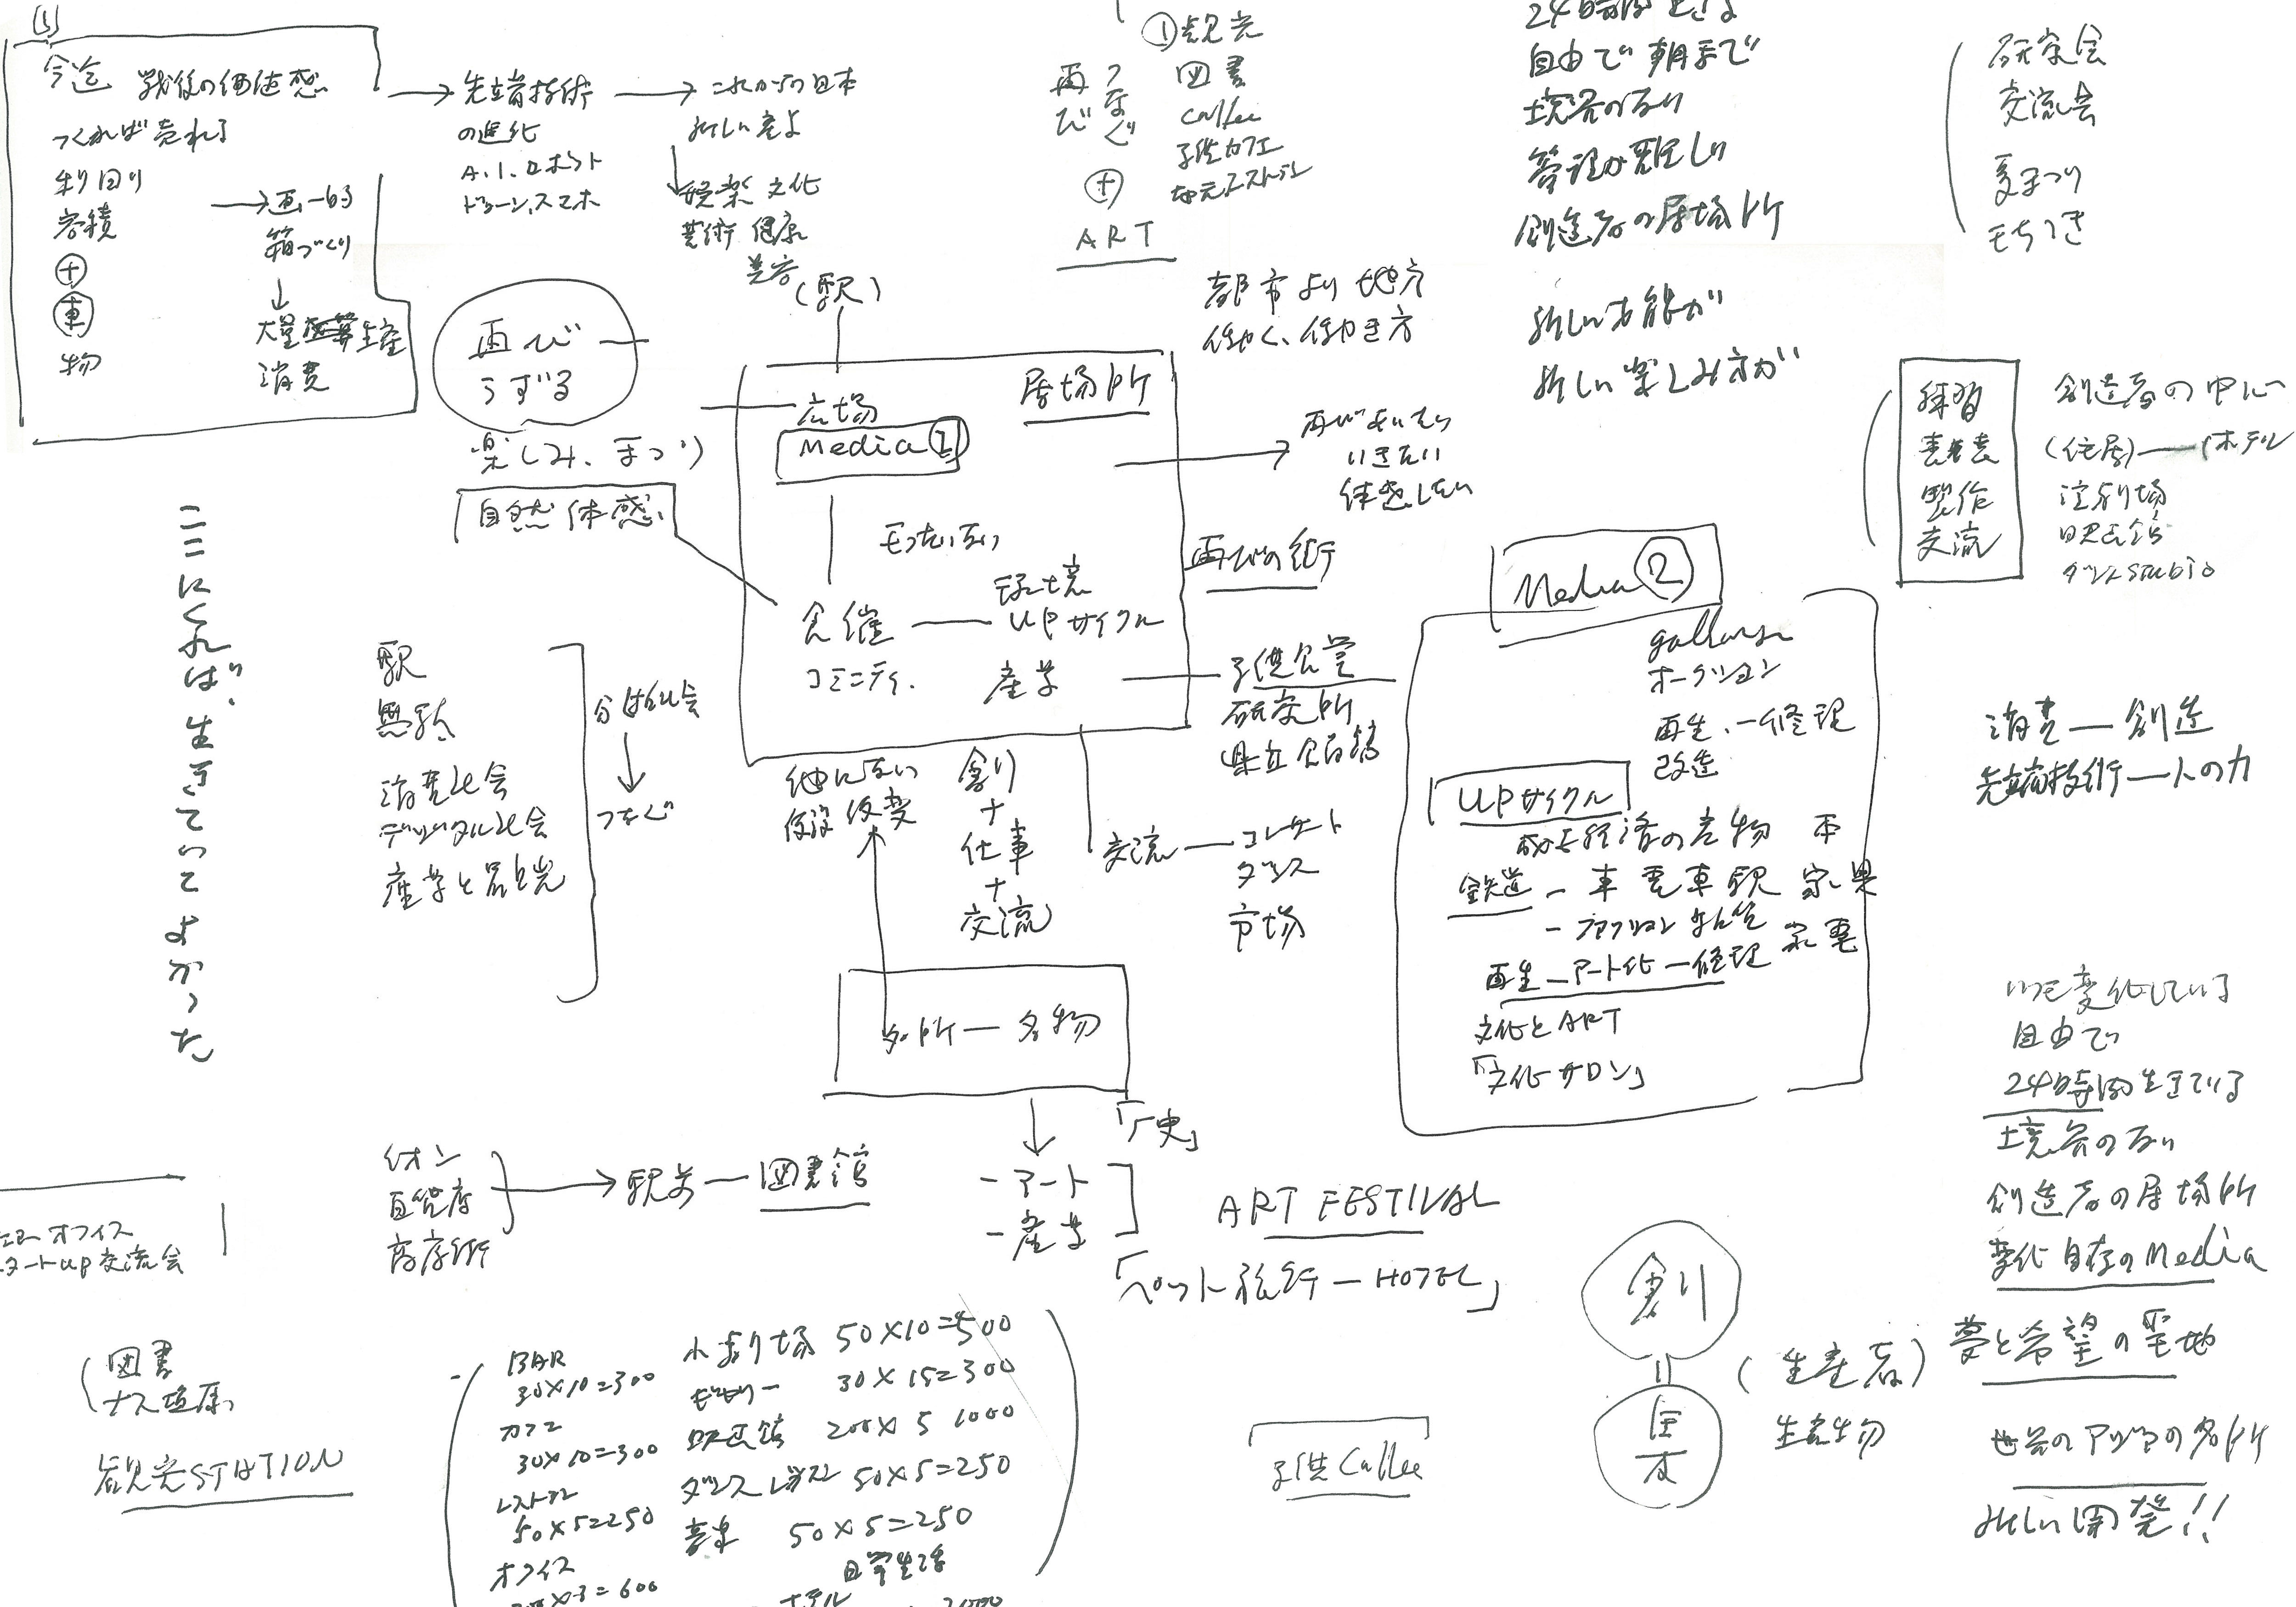 (1)
今迄 戦後の価値感
つくれば売れる
利回り
容積
＋
車
物
→画一的
箱づくり
↓
大量生産
消費
→先端技術
の進化
A.I.ロボット
ドローン、スマホ
→これからの日本
新しい産よ
↓
娯楽 文化
芸術 健康
美容
再び
つなぐ
＋
ART
①観光
図書
caffee
子供カフェ
地元レストラン
24時間
自由で朝まで
境界のない
管理が難しい
創造者の居場所
新しい才能が
新しい楽しみ方が
研究会
交流会
夏まつり
もちつき
再び
うずる
楽しみ、まつり
自然体感
(駅)
広場
居場所
Media①
もったいない
食催
コミニティ.
環境
UPサイクル
産学
都市より地方
働く、働き方
→再びあいたい
いきたい
体感したい
再びの街
子供食堂
研究所
県立図書館
練習
発表
製作
交流
創造者の中心
(住居)―ホテル
演劇場
映画館
ダンスstudio
ここにくれば、生きていてよかった
駅
無駄
消費社会
デジタル社会
産学と観光
分断社会
↓
つなぐ
他にない
仮設 仮変
創り
＋
仕事
＋
交流
交流―コンサート
ダンス
市場
Media②
gallary
オークション
再生.―修理
改造
UPサイクル
成長経済の産物 本
鉄道―車 電車 駅 家具
―ファッション 家電
再生―アート化―修理
文化とART
「文化サロン」
消費―創造
先端技術―人の力
名所―名物
↓
―アート
―産学
イオン
百貨店
商店街
→駅前―図書館
ART FESTIVAL
「ペット旅行―HOTEL」
オフィス
スタートup交流会
いつも変化している
自由で
24時間生きている
境界のない
創造者の居場所
変化自在のMedia
夢と希望の聖地
世界のアジアの名所
新しい開発!!
創
＝
日本
(生産者)
生産物
図書
ナス塩原
観光STATION
BAR
30×10=300
カフェ
30×10=300
レストラン
50×5=250
オフィス
×3=600
小劇場 50×10=500
ギャラリー 30×15=300
映画館 200×5 1000
ダンス 50×5=250
音楽 50×5=250
ホテル
子供Caffee